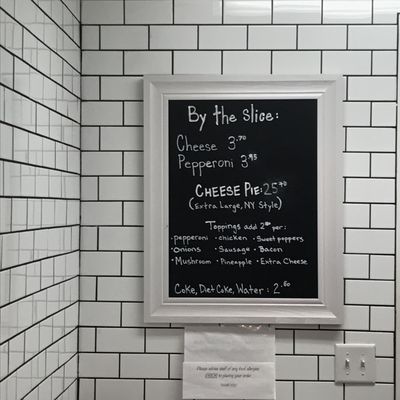 By the Slice:
Cheese 3.70
Pepperoni 3.95
CHEESE PIE: 25.70
(Extra Large, NY Style)
Toppings add 2.00 per:
·pepperoni ·chicken ·Sweet peppers
·Onions ·Sausage ·Bacon
·Mushroom ·Pineapple ·Extra Cheese
Coke, Diet Coke, Water: 2.80
Please advise staff of any food allergies
PRIOR to placing your order.